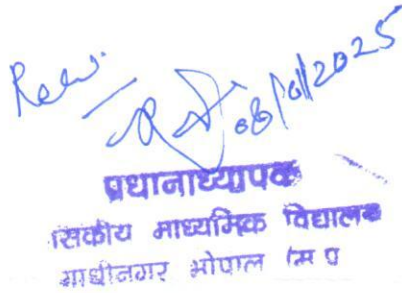 Recv.
08/01/2025
प्रधानाध्यापक
सकीय माध्यमिक विद्यालय
गाधीनगर भोपाल म प्र